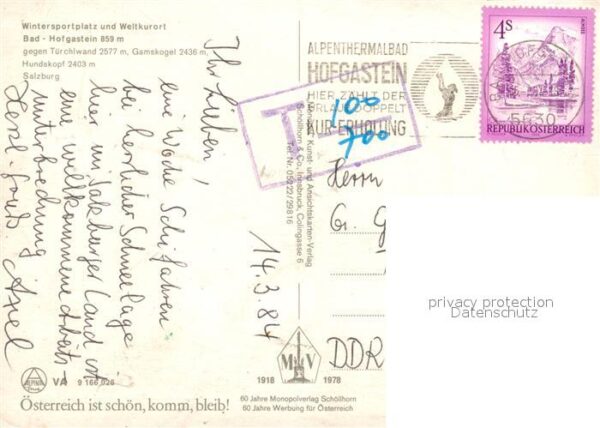 Wintersportplatz und Weltkurort
Bad - Hofgastein 859 m
gegen Türchlwand 2577 m, Gamskogel 2436 m,
Hundskopf 2403 m
Salzburg
Ihr Lieben!
eine Woche Schifahren
bei herrlicher Schneelage
hier im Salzburger Land ist
eine willkommene Arbeits-
unterbrechung
Herzl. Gruß Axel
14.3.84
ALPENTHERMALBAD
HOFGASTEIN
HIER ZÄHLT DER
URLAUB DOPPELT
KUR-ERHOLUNG
T
100
700
4S
REPUBLIK ÖSTERREICH
5630
Kunst- und Ansichtskarten-Verlag
Schöllhorn & Co., Innsbruck, Colingasse 5
Tel. Nr. 05222/29816
Herrn
Gr. G
DDR
privacy protection
Datenschutz
ALPINA
VA 9 166 026
MV
1918 1978
Österreich ist schön, komm, bleib!
60 Jahre Monopolverlag Schöllhorn
60 Jahre Werbung für Österreich